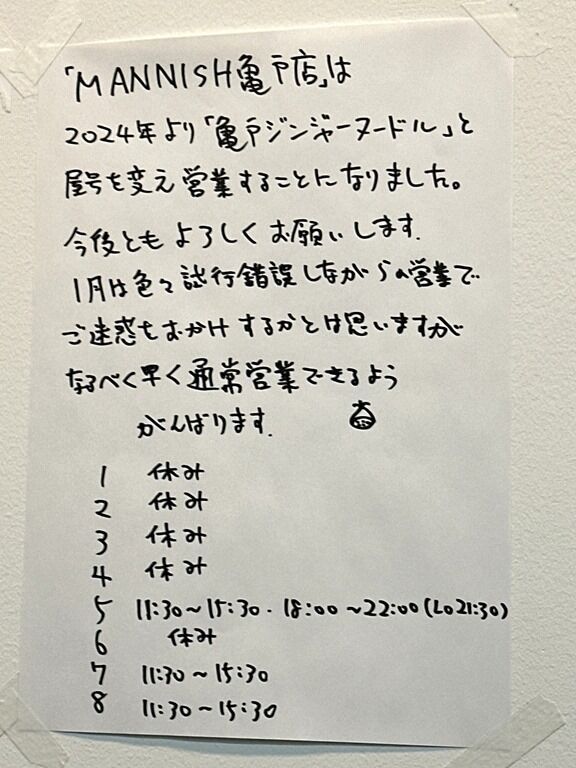 「MANNISH亀戸店」は
2024年より「亀戸ジンジャーヌードル」と
屋号を変え営業することになりました。
今後ともよろしくお願いします.
1月は色々試行錯誤しながらの営業で
ご迷惑をおかけするかとは思いますが
なるべく早く通常営業できるよう
がんばります.
1 休み
2 休み
3 休み
4 休み
5 11:30〜15:30・18:00〜22:00(LO21:30)
6 休み
7 11:30〜15:30
8 11:30〜15:30